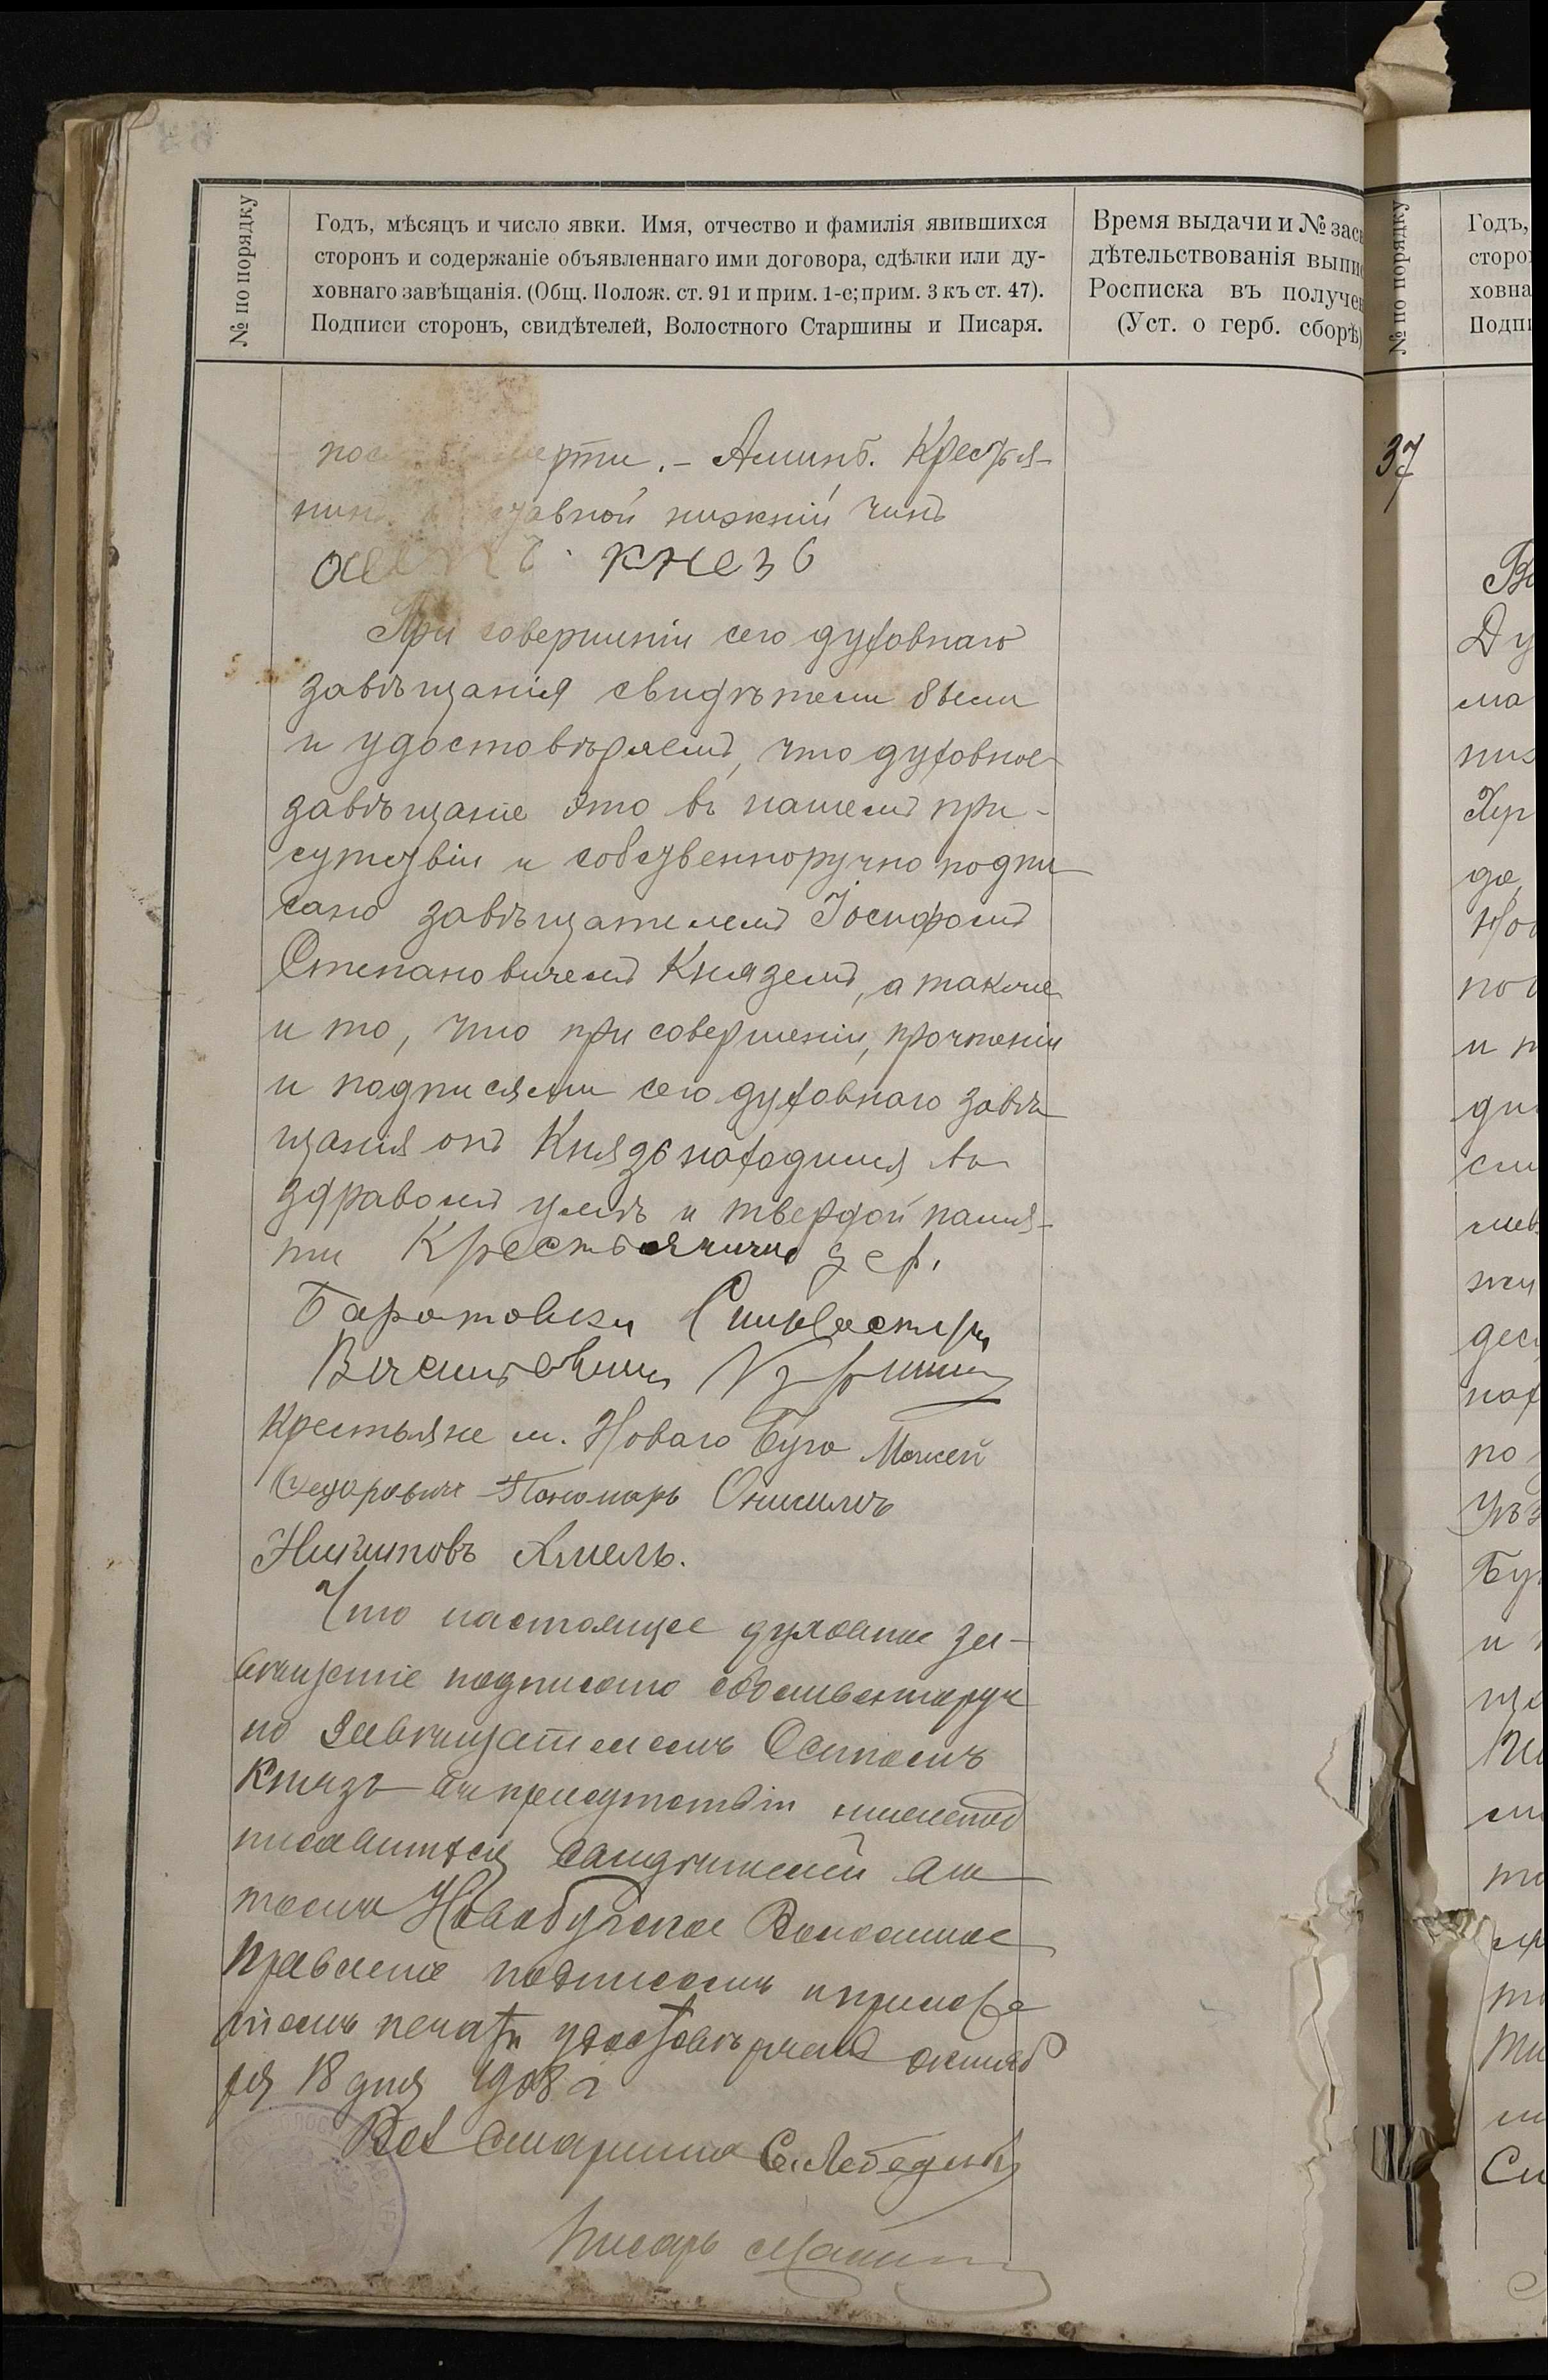 № по порядку
Годъ, мѣсяцъ и число явки. Имя, отчество и фамилія явившихся
сторонъ и содержаніе объявленнаго ими договора, сдѣлки или ду-
ховнаго завѣщанія. (Общ. Полож. ст. 91 и прим. 1-е; прим. 3 къ ст. 47).
Подписи сторонъ, свидѣтелей, Волостного Старшины и Писаря.
Время выдачи и № зас
дѣтельствованія выпи
Росписка въ получе
(Уст. о герб. сборѣ)
ерти. - Аминь. Крестья-
нижній чинъ
кнезь
При совершеніи сего духовнаго
завѣщанія свидѣтели были
и удостовѣряемъ, что духовное
завѣщаніе это въ нашемъ при-
сутствіи и собственноручно подпи
сано завѣщателемъ Іосифомъ
Степановичемъ Княземъ, а также
и то, что при совершеніи, прочтеніи
и подписями сего духовнаго завѣ
щанія онъ Князь находился въ
здравомъ умѣ и твердой памя-
ти Крестьянинъ дер.
Баратовки
Крестьяне м. Новаго Буга Моисей
Федоровичъ Пономарь
Никитовъ
Что настоящее духовное за-
вѣщаніе подписано собственноруч
но завѣщателемъ Осипомъ
Князь въ присутствіи нижепод
писавшихся свидѣтелей въ
томъ Новобугское Волостное
Правленіе подписомъ и приложе
ніемъ печати удостовѣряетъ октяб
ря 18 дня 1908 г
Вол Старшина С. Лебедь
Писарь
№ по порядку
37
Годъ,
сторо
ховна
Подпи